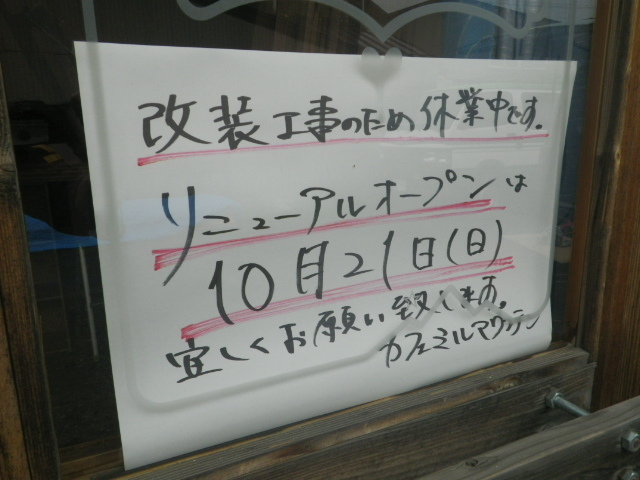 改装工事のため休業中です。
リニューアルオープンは
10月21日(日)
宜しくお願い致します。
カフェミルマウンテン